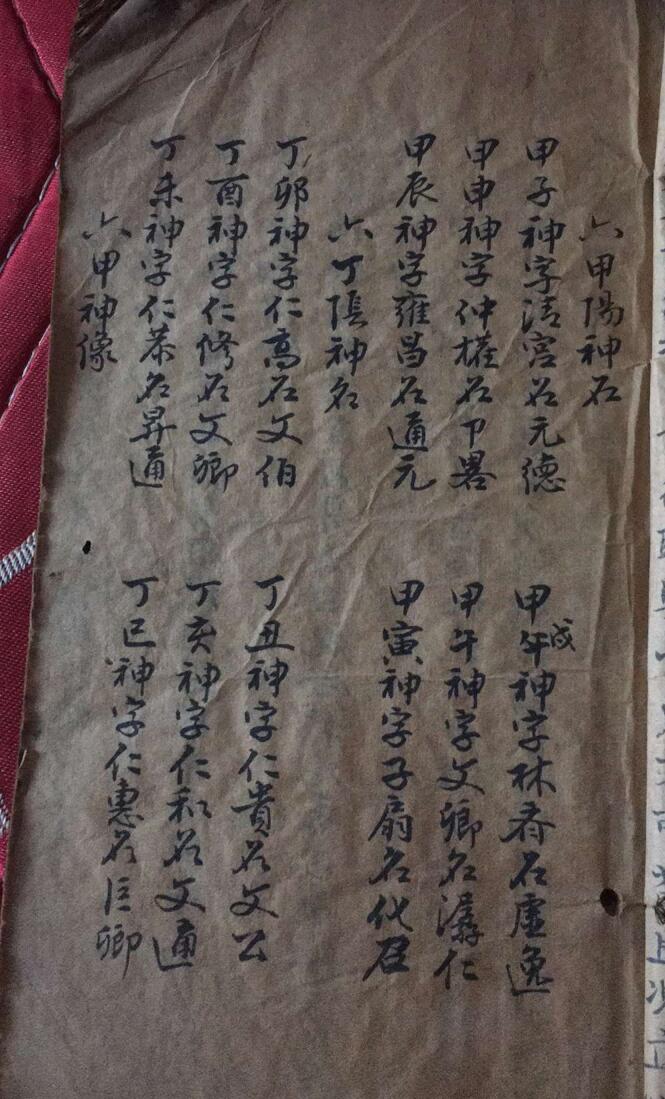 六甲陽神名
甲子神字清宫名元德
甲戌神字林斎名虚逸
甲申神字仲權名卞畧
甲午神字文卿名潺仁
甲辰神字雍昌名通元
甲寅神字子扇名化召
六丁陰神名
丁卯神字仁高名文伯
丁丑神字仁貴名文公
丁酉神字仁修名文卿
丁亥神字仁和名文通
丁未神字仁恭名昇通
丁巳神字仁惠名巨卿
六甲神像